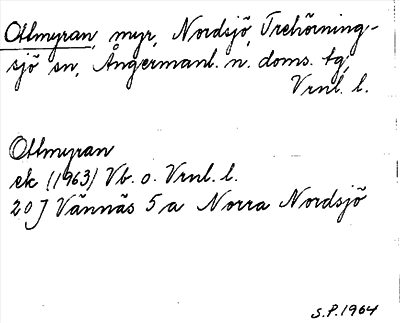 Olmyran, myr, Nordsjö, Trehörning-
sjö sn, Ångermanl. n. doms. tg,
Vrnl. l.
Olmyran
ek (1963) Vb. o. Vrnl. l.
20 J Vännäs 5 a Norra Nordsjö
S.P. 1964